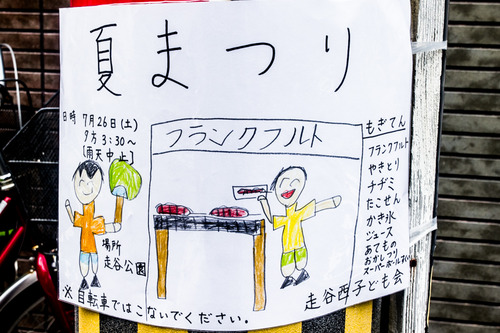 夏まつり
日時 7月26日(土)
夕方3:30~
[雨天中止]
フランクフルト
場所
走谷公園
もぎてん
フランクフルト
やきとり
チヂミ
たこせん
かき氷
ジュース
あてもの
おかしつり
スーパーボールすくい
※自転車ではこないでください。
走谷西子ども会